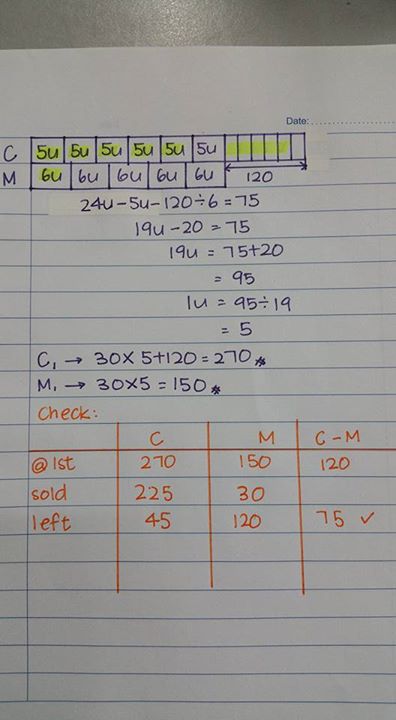 Date:
C 5u 5u 5u 5u 5u 5u
M 6u 6u 6u 6u 6u 120
24u-5u-120÷6=75
19u-20=75
19u=75+20
=95
1u=95÷19
=5
C₁→30×5+120=270*
M₁→30×5=150*
Check:
C M C-M
@1st 270 150 120
sold 225 30
left 45 120 75 ✓